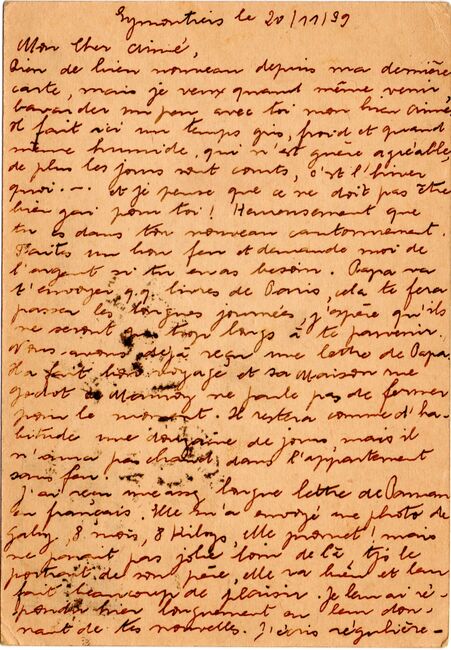 Eymoutiers le 20/11/39
Mon Cher Aimé,
Rien de bien nouveau depuis ma dernière
carte, mais je veux quand même venir
bavarder un peu avec toi mon bien Aimé,
Il fait ici un temps gris, froid et quand
même humide, qui n'est guère agréable,
de plus les jours sont courts, c'est l'hiver
quoi... et je pense que ce ne doit pas être
bien gai pour toi! Heureusement que
tu es dans ton nouveau cantonnement.
Faites un bon feu et demande moi de
l'argent si tu en as besoin. Papa va
t'envoyer q.q. livres de Paris, cela te fera
passer les longues journées, j'espère qu'ils
ne seront pas trop longs à te parvenir
Nous avons déjà reçu une lettre de Papa.
Il a fait bon voyage et sa Maison
ne parle pas de fermer
pour le moment. Il restera comme d'ha-
bitude une douzaine de jours mais il
n'aura pas chaud dans l'appartement
sans feu.
J'ai reçu une assez longue lettre de
en français. Elle m'a envoyé une photo de
Gaby, 8 mois, 8 Kilogs, elle promet! mais
ne parait pas jolie loin de là tjs le
portrait de son père, elle va bien et leur
fait beaucoup de plaisir. Je leur ai ré-
pondu hier longuement en leur don-
nant de tes nouvelles. J'écris régulière-